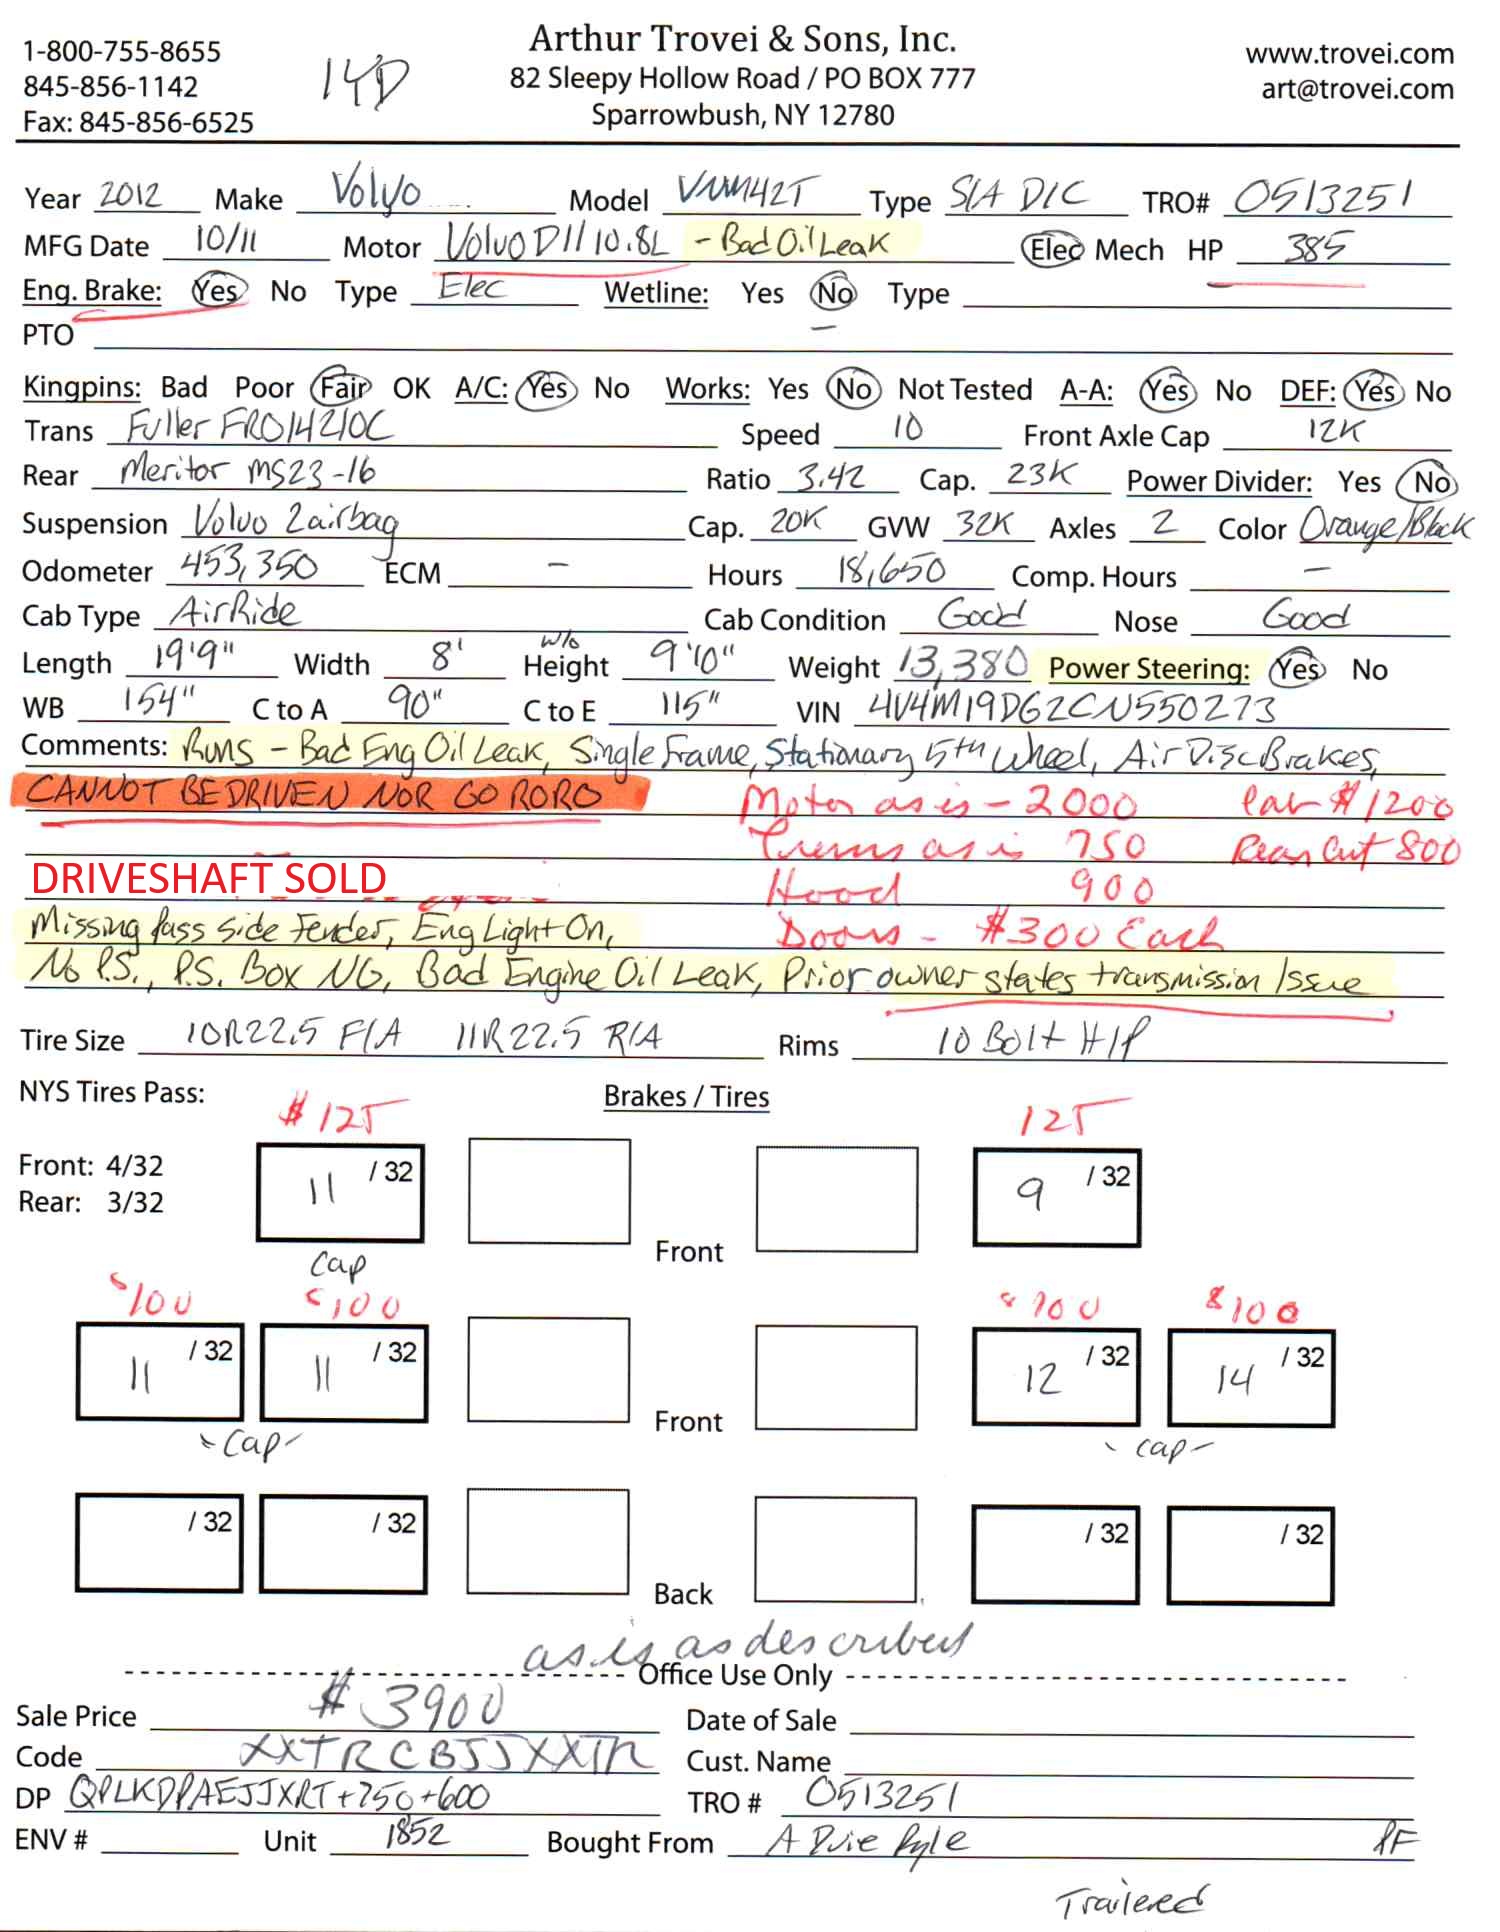 1-800-755-8655
845-856-1142
Fax: 845-856-6525
14D
Arthur Trovei & Sons, Inc.
82 Sleepy Hollow Road / PO BOX 777
Sparrowbush, NY 12780
www.trovei.com
art@trovei.com
Year 2012 Make Volvo Model VNM42T Type S/A D/C TRO# 0513251
MFG Date 10/11 Motor Volvo D11 10.8L - Bad Oil Leak Elec Mech HP 385
Eng. Brake: Yes No Type Elec Wetline: Yes No Type
PTO
Kingpins: Bad Poor Fair OK A/C: Yes No Works: Yes No Not Tested A-A: Yes No DEF: Yes No
Trans Fuller FRO14210C Speed 10 Front Axle Cap 12K
Rear Meritor MS23-16 Ratio 3.42 Cap. 23K Power Divider: Yes No
Suspension Volvo 2airbag Cap. 20K GVW 32K Axles 2 Color Orange/Black
Odometer 453,350 ECM - Hours 18,650 Comp. Hours -
Cab Type AirRide Cab Condition Good Nose Good
Length 19'9" Width 8' w/o Height 9'10" Weight 13,380 Power Steering: Yes No
WB 154" C to A 90" C to E 115" VIN 4V4M19DG2CN550273
Comments: Runs - Bad Eng Oil Leak, Single Frame, Stationary 5th Wheel, Air Disc Brakes,
CANNOT BE DRIVEN NOR GO RORO Motor as is - 2000 Cab $1200
Trans as is 750 Rear Cut 800
DRIVESHAFT SOLD Hood 900
Missing Pass Side Fender, Eng Light On, Doors - $300 Each
No P.S., P.S. Box NG, Bad Engine Oil Leak, Prior owner states transmission Issue
Tire Size 10R22.5 F/A 11R22.5 R/A Rims 10 Bolt H/P
NYS Tires Pass: Brakes / Tires
$125 125
Front: 4/32
Rear: 3/32
11 /32 9 /32
Front
Cap
$100 $100 $100 $100
11 /32 11 /32 12 /32 14 /32
Front
-Cap- -Cap-
/32 /32 /32 /32
Back
as is as described
Office Use Only
Sale Price $3900 Date of Sale
Code XXTRCBJJXXTR Cust. Name
DP QPLKDPAEJJXRT+750+600 TRO # 0513251
ENV # Unit 1852 Bought From A Duie Pyle PF
Trailered